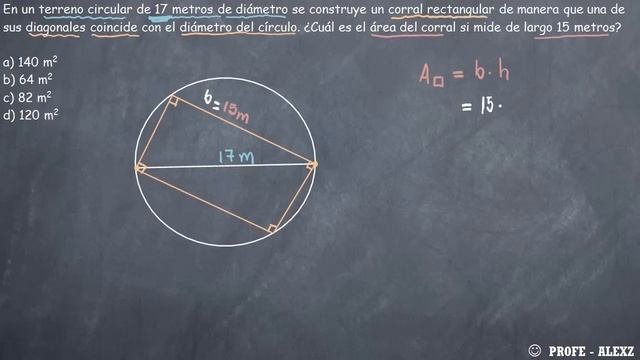 En un terreno circular de 17 metros de diámetro se construye un corral rectangular de manera que una de
sus diagonales coincide con el diámetro del círculo. ¿Cuál es el área del corral si mide de largo 15 metros?
a) 140 m²
b) 64 m²
c) 82 m²
d) 120 m²
b = 15m
17 m
A□ = b · h
= 15 ·
☺ PROFE - ALEXZ